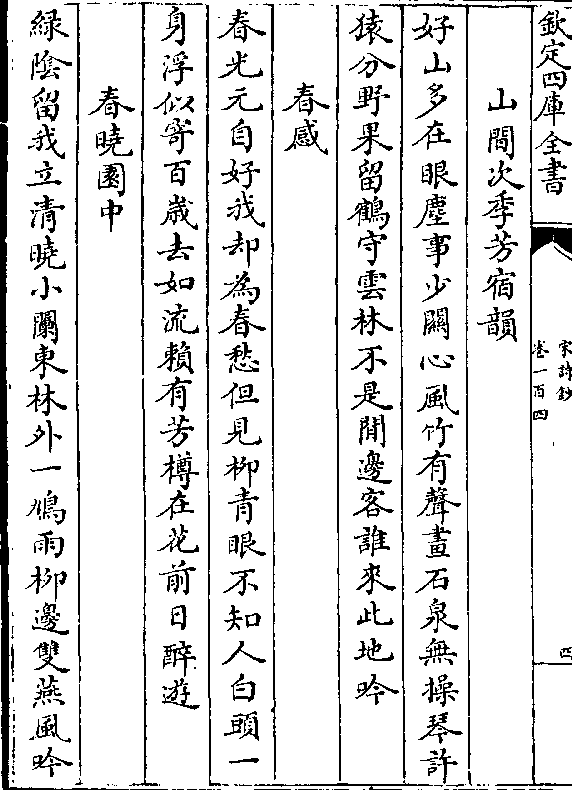 欽定四庫全書
宋詩鈔
卷一百四
四
山間次季芳宿韻
好山多在眼塵事少關心風竹有聲畫石泉無操琴許
猿分野果留鶴守雲林不是閒邊客誰來此地吟
春感
春光元自好我却為春愁但見柳青眼不知人白頭一
身浮似寄百歲去如流賴有芳樽在花前日醉遊
春曉園中
緑陰留我立清曉小闌東林外一鳩雨柳邊雙燕風吟